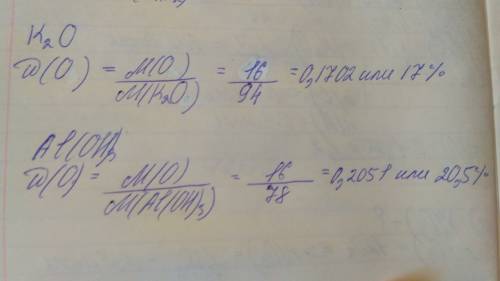 K₂O
ω(O) = M(O) / M(K₂O) = 16 / 94 = 0,1702 или 17%
Al(OH)₃
ω(O) = M(O) / M(Al(OH)₃) = 16 / 78 = 0,2051 или 20,5%